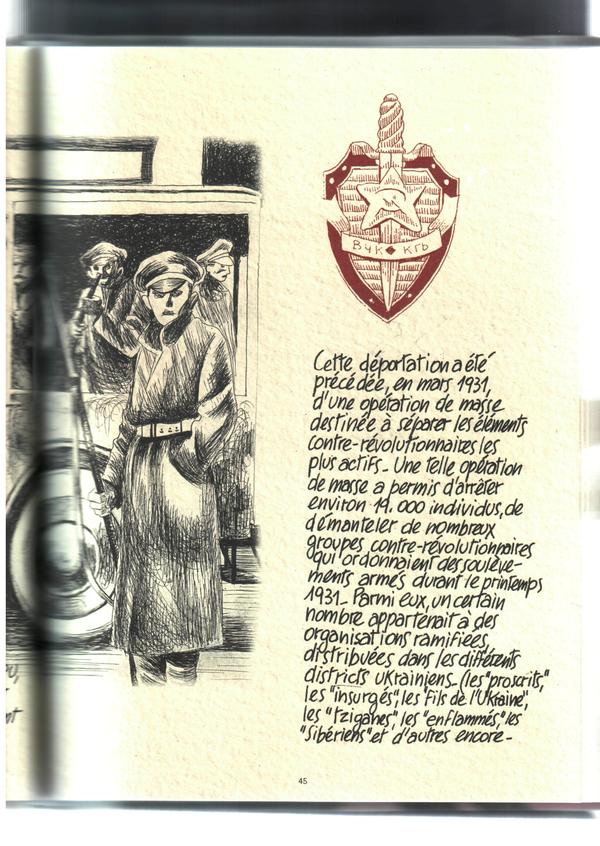 ВЧК КГБ
Cette déportation a été
précédée, en mars 1931,
d'une opération de masse
destinée à séparer les éléments
contre-révolutionnaires les
plus actifs_ Une telle opération
de masse a permis d'arrêter
environ 19.000 individus, de
démanteler de nombreux
groupes contre-révolutionnaires
qui ordonnaient des soulève-
ments armés durant le printemps
1931_ Parmi eux, un certain
nombre appartenait à des
organisations ramifiées,
distribuées dans les différents
districts ukrainiens_ (les "proscrits,"
les "insurgés", les "fils de l'Ukraine",
les "tziganes", les "enflammés", les
"sibériens" et d'autres encore-
45